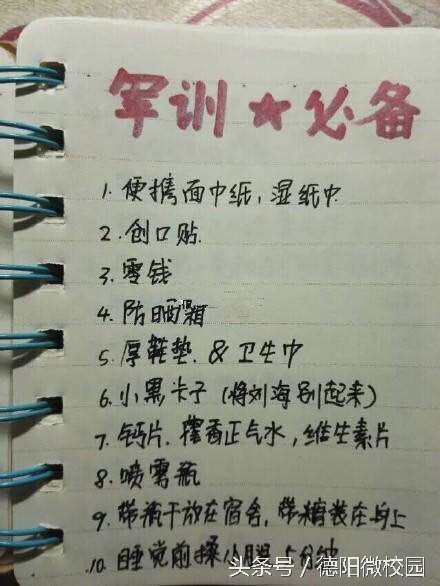 军训★必备
1. 便携面巾纸, 湿纸巾
2. 创口贴
3. 零钱
4. 防晒霜
5. 厚鞋垫 & 卫生巾
6. 小黑卡子 (将刘海别起来)
7. 钙片. 藿香正气水, 维生素片
8. 喷雾瓶
9. 带饼干放在宿舍, 带糖装在身上
10. 睡觉前揉小腿 5分钟
头条号/德阳微校园